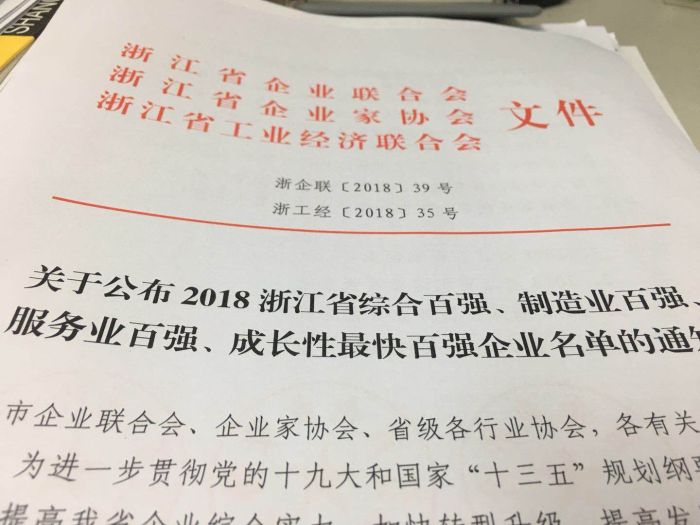 SHAN
浙江省企业联合会
浙江省企业家协会 文件
浙江省工业经济联合会
浙企联〔2018〕39 号
浙工经〔2018〕35 号
关于公布 2018 浙江省综合百强、制造业百强、
服务业百强、成长性最快百强企业名单的通知
市企业联合会、企业家协会、省级各行业协会，各有关
为进一步贯彻党的十九大和国家“十三五”规划纲要
提高我省企业综合实力，加快转型升级，提高发